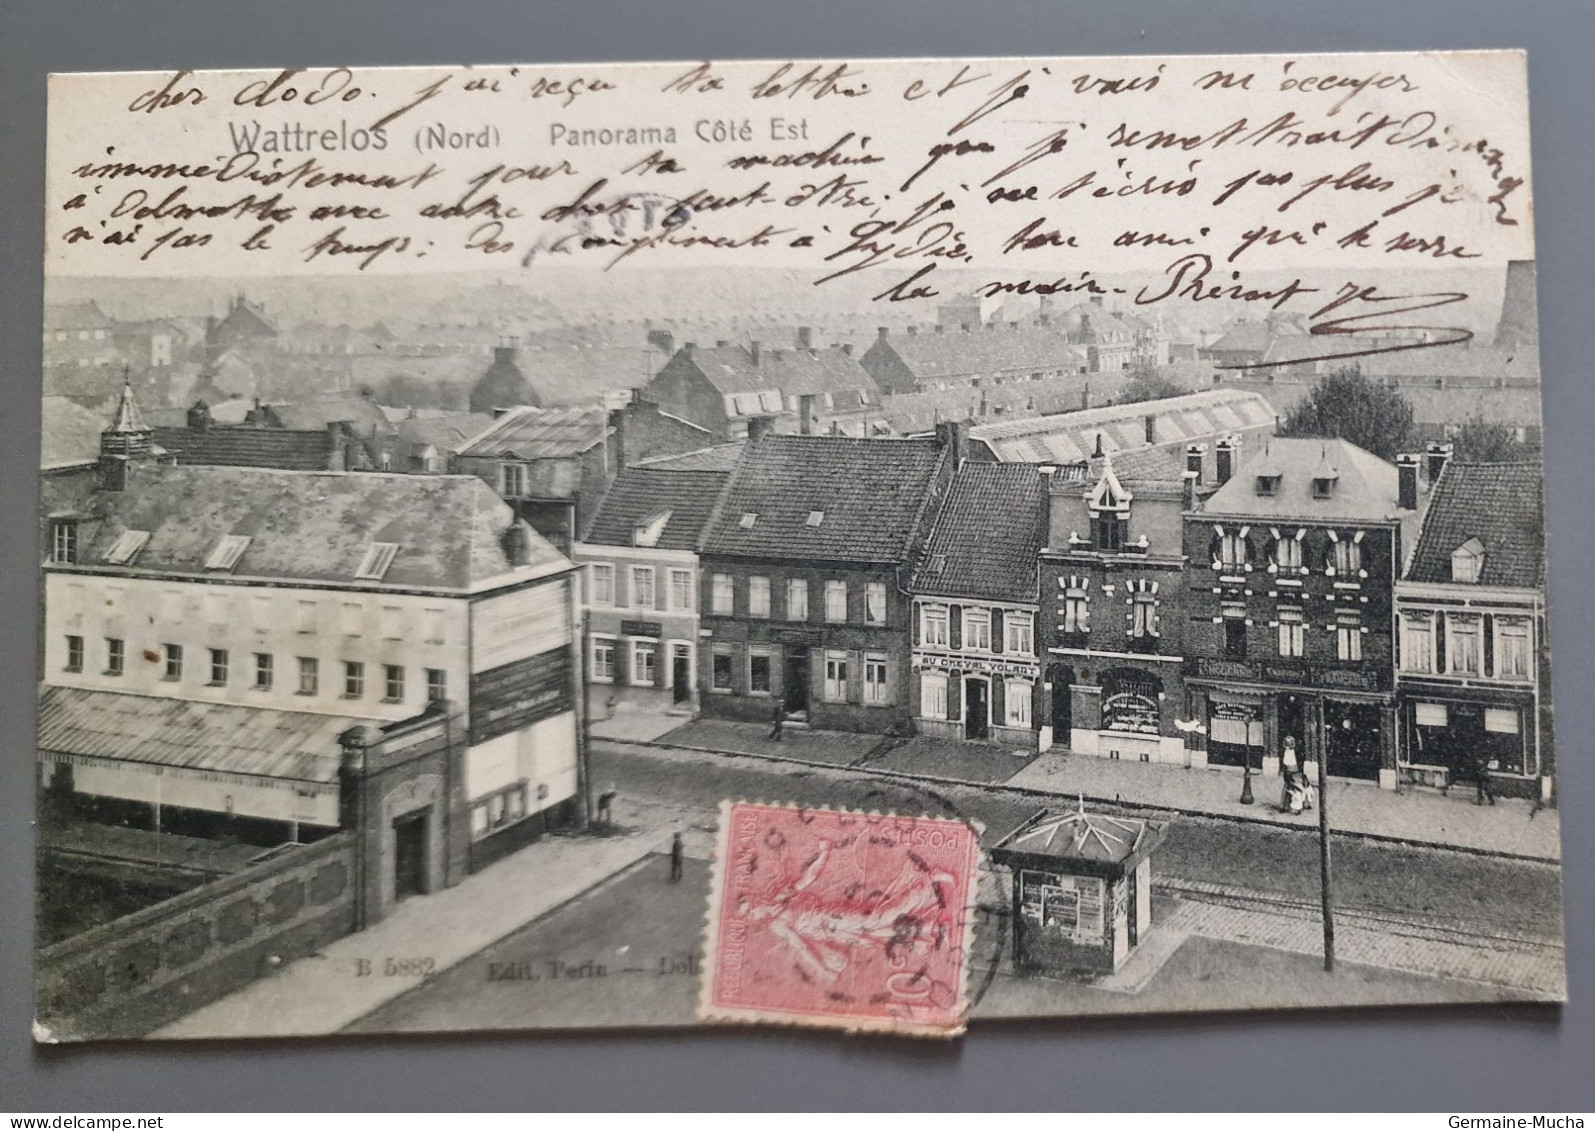 cher dodo. j'ai reçu ta lettre et je vais m'occuper
Wattrelos (Nord) Panorama Côté Est
immédiatement pour ta machine que je remettrait dimanche
à Delmotte avec autre peut-être; je ne t'écris pas plus je
n'ai pas le temps: des compliments à Lydie, ton ami qui te serre
la main.
AU CHEVAL VOLANT
POSTES
REPUBLIQUE FRANÇAISE
10
B 5882 Edit. Perin —
Germaine-Mucha